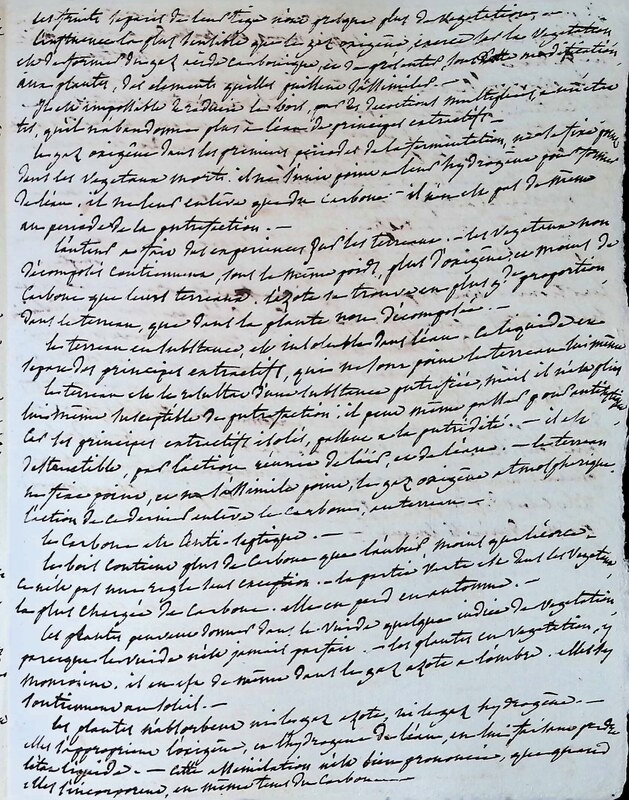 les fruits séparés de leur tige n'ont presque plus de végétation. —
L'influence la plus sensible que le gaz oxigène, exerce sur la végétation
est de former du gaz acide carbonique, et de présenter sous cette modification,
aux plantes, des elements qu'elles puissent s'assimiler. —
Il est impossible de réduire le bois, par des décoctions multipliées, à
tes, qu'il n'abandonne plus à l'eau de principes extractifs. —
le gaz oxigène dans les premiers périodes de la fermentation, ne se fixe point
dans les vegetaux morts. il ne s'unit point à leur hydrogène pour former
de l'eau, il ne leur enlève que du carbone. — il n'en est pas de même
au periode de la putrefaction. —
L'auteur a fait des experiences sur les terreaux. — les vegetaux non
décomposés contiennent, sous le même poids, plus d'oxigène, et moins de
carbone que leurs terreaux. l'azote se trouve en plus gde proportion,
dans le terreau, que dans la plante non décomposée. —
le terreau en substance, est insoluble dans l'eau. Ce liquide en
separe des principes extractifs, qui ne sont point le terreau lui même
le terreau est le résultat d'une substance putrefiée, mais il n'est plus
lui même susceptible de putrefaction: il peut même passer pour antiseptique
Car les principes extractifs isolés, passent à la putridité. — il est
destructible, par l'action réunie de l'air, et de l'eau. — le terreau
ne fixe point, et ne s'assimile point, le gaz oxigène atmospherique.
l'action de ce dernier enlève le carbone, au terreau. —
le carbone est anti-septique. —
les bois contient plus de carbone que l'aubier, moins que l'écorce. —
ce n'est pas une regle sans exception. — la partie verte est dans les vegetaux
la plus chargée de carbone. elle en perd en automne. —
les plantes peuvent donner dans le vuide quelque indice de vegetation,
parceque le vuide n'est jamais parfait. — les plantes en vegetation, y
meurent. il en est de même dans le gaz azote à l'ombre. elles s'y
soutiennent au soleil. —
les plantes n'absorbent ni le gaz azote, ni le gaz hydrogène. —
elles s'approprient l'oxigène, et l'hydrogene de l'eau, en lui faisant perdre
l'état liquide. — cette assimilation n'est bien prononcée, que quand
elles s'incorporent, en même tems du carbone —